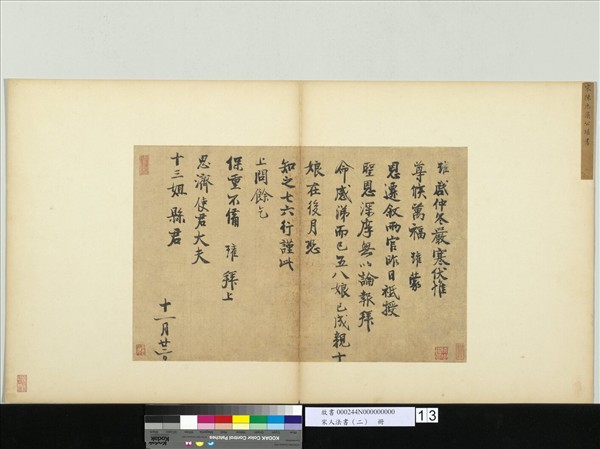 啟仲冬嚴寒伏惟
尊候萬福 蒙
恩遷敘兩官昨日祗授
聖恩深厚無以論報拜
命感涕而已五八娘已成親十
娘在後月恐
知之七六行謹此
上問餘乞
保重不備 拜上
思濟使君大夫
十三姐縣君
十一月廿二日
故書 000244N000000000
宋人法書（二） 冊
13
Kodak
KODAK Color Control Patches